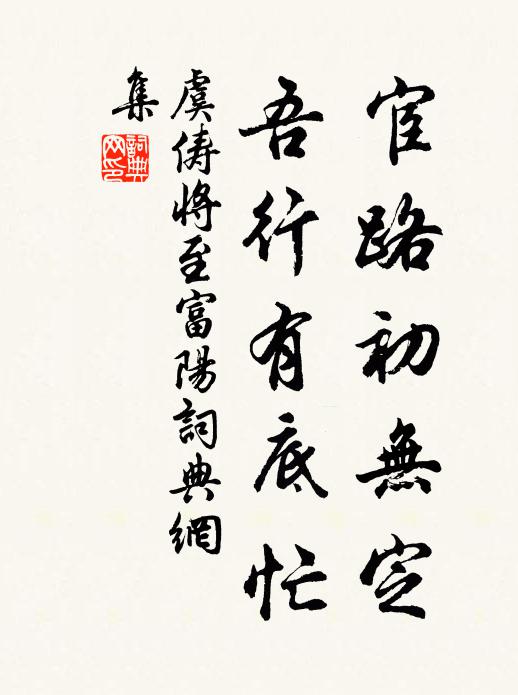 宦路初無定
吾行有底忙
虞儔將至富陽詞典網
集
詞典
网印